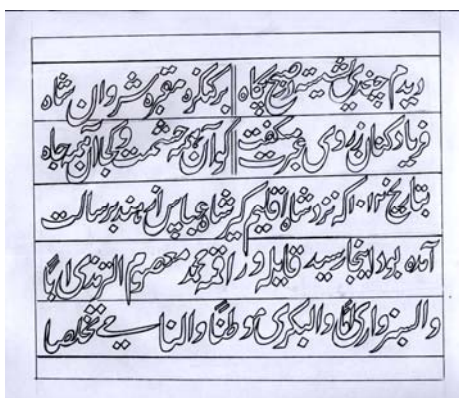 دیدم چغدی نشسته صبح پگاه بر کنگره مقبره شروان شاه
فریاد کنان ز روی عبرت میگفت کو آن همه حشمت و کجا آن همه جاه
بتاریخ که نزد شاه اقلیم گیر شاه عباس از هند برسالت
آمده بود اینجا رسید قایله و راقمه محمد معصوم الترمذی اباً
والسبزواری اماً والبکری موطناً والنامی تخلصا